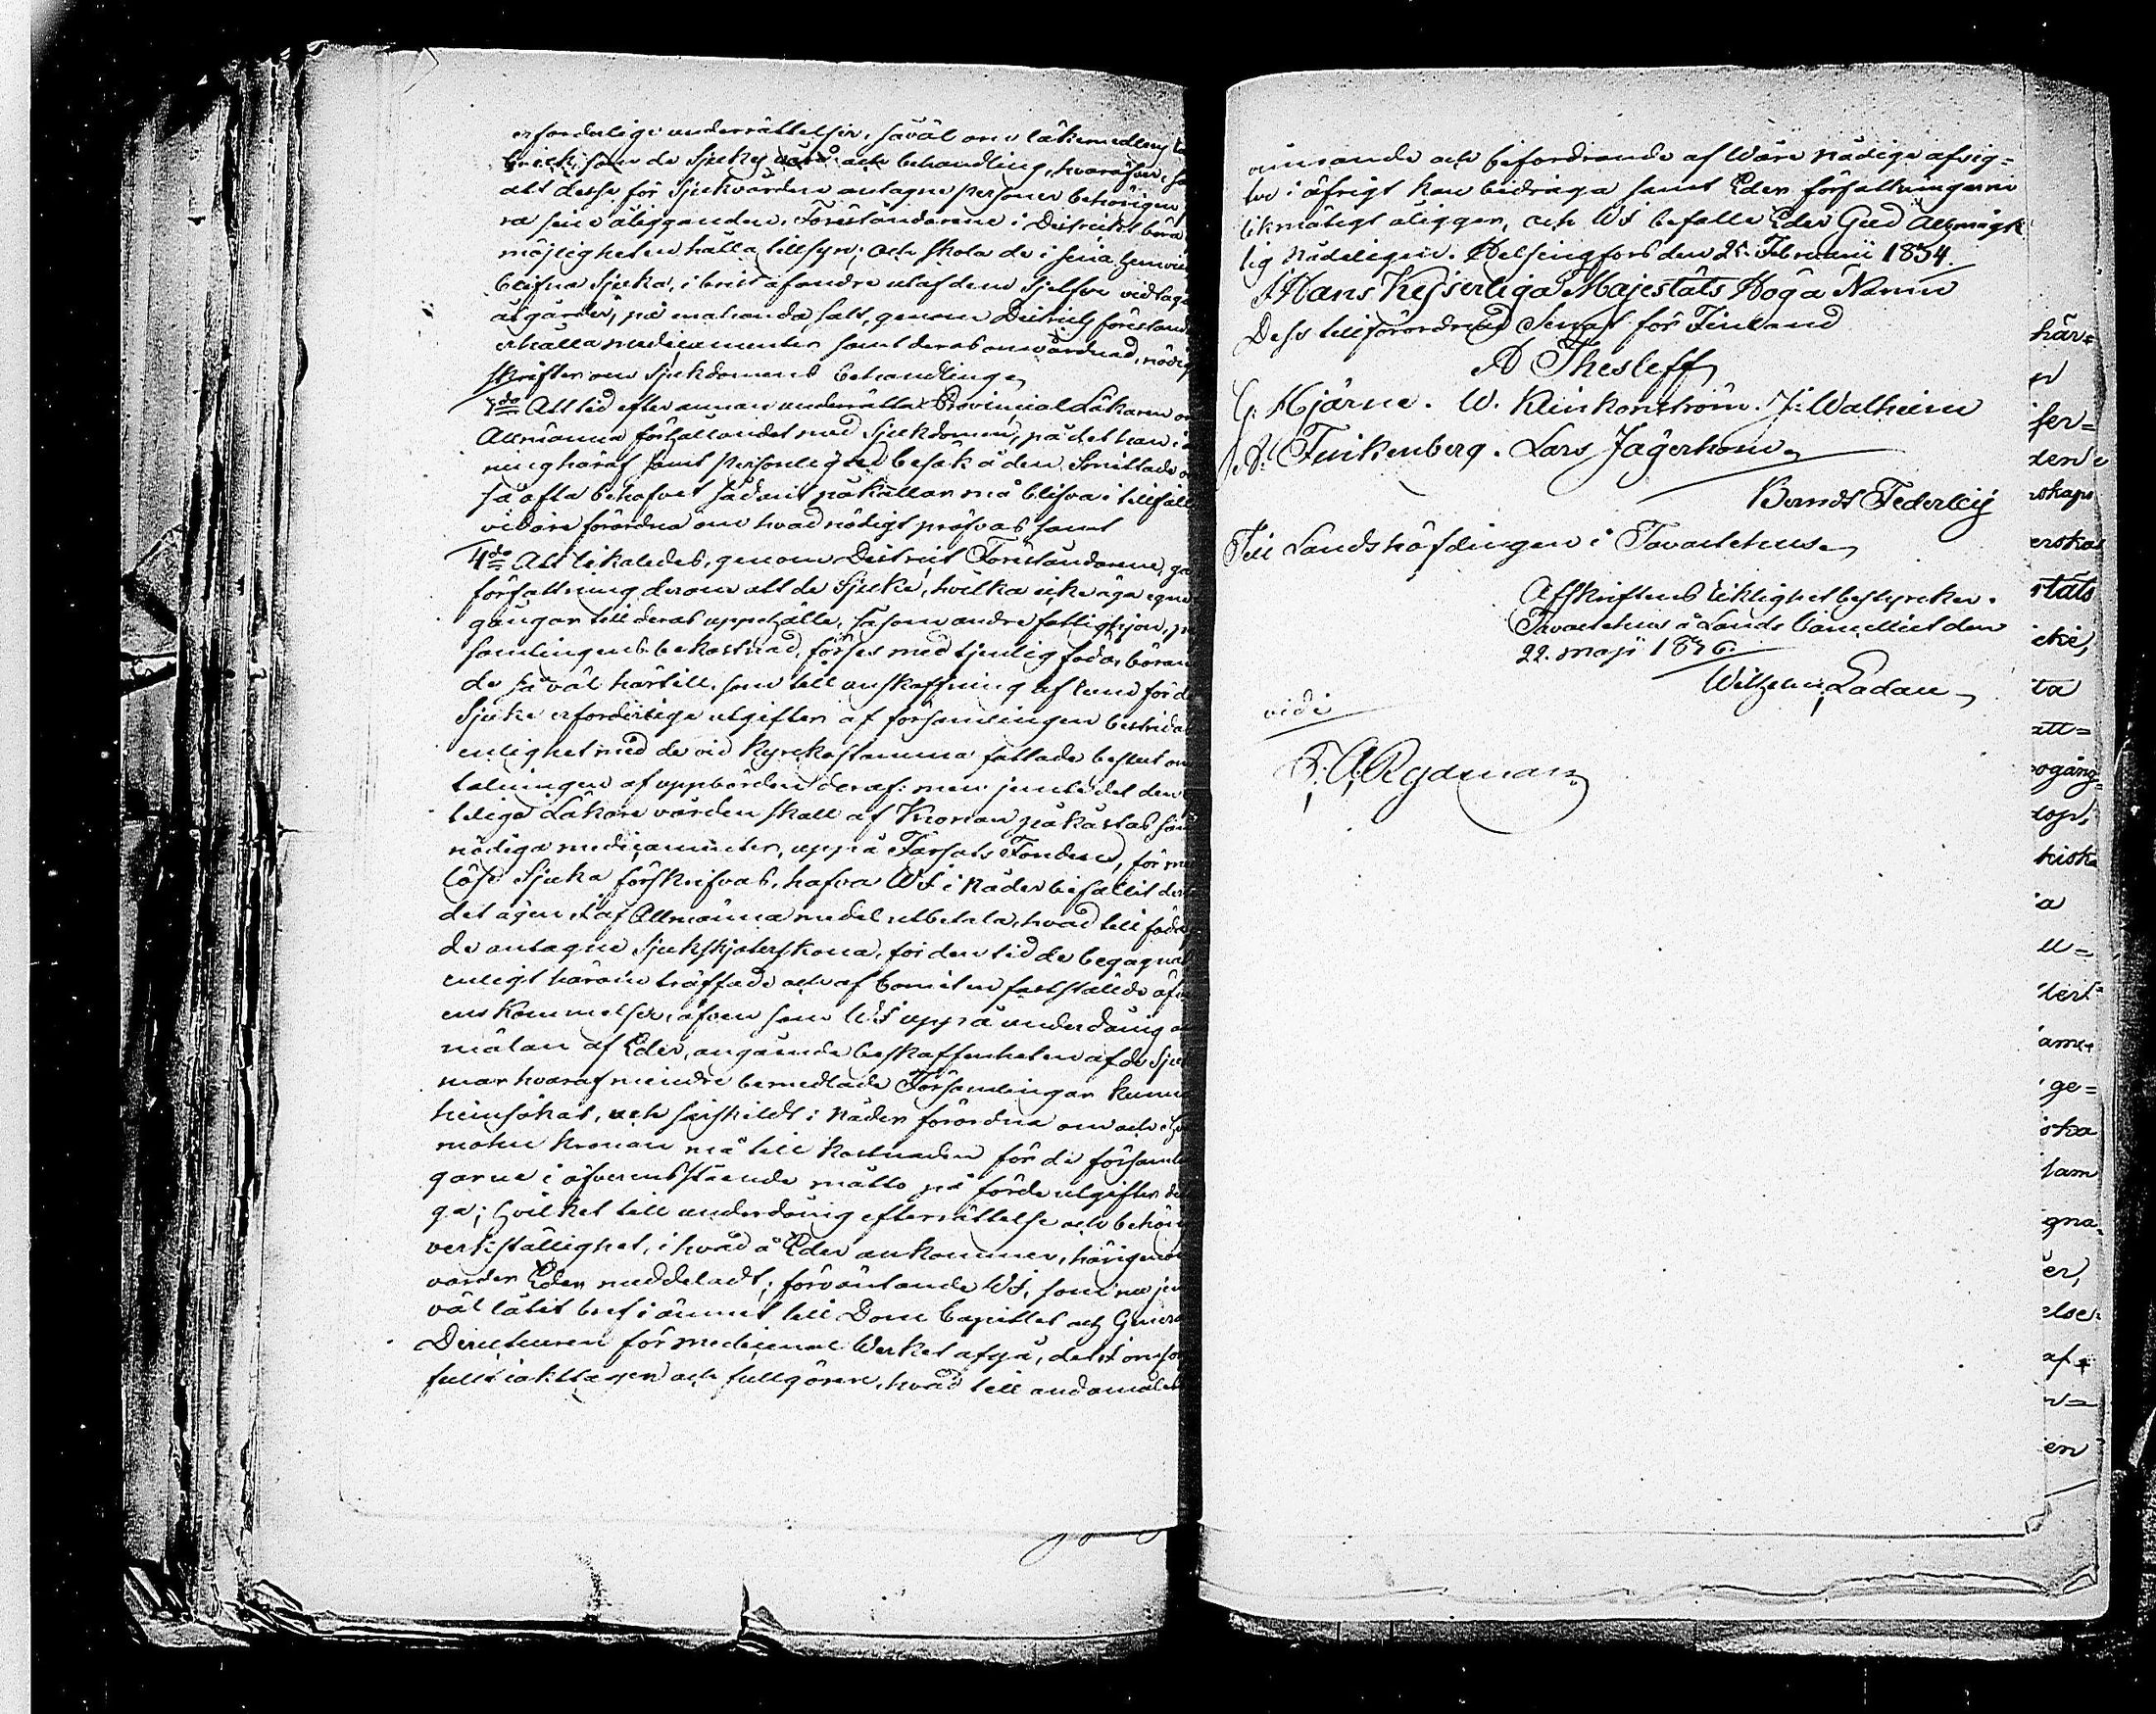 erforderlige underrättelser, såväl om läkemedlens
bruk, som de Sjukes vård och behandling, hvaröfver,
att desse för Sjukvården antagne personer behörigen
ra sine åligganden, Föreståndarene i Districtet böra
möjligheten hålla tillsyn; och skola de i sina hemvist
blifna Sjuka, i brist af andre utaf dem Sjelfve vidtagne
åtgärder, på enahanda sätt, genom Districts förestånd
erhålla medicamenter samt deras omvårdnad, nödig
skrifter om Sjukdomens behandling.
3do Att tid efter annan underrätta Provincial Läkaren om
Allmänna förhållandet med Sjukdomen, på det han i
ning häraf samt personliga besök å den Smittade
så ofta behofvet sådant påkallar må blifva i tillfälle
vidare förordna om hvad nödigt pröfvas samt
4do Att likaledes, genom District Föreståndarene, gå
författning derom att de Sjuke, hvilka icke äga egne
gångar till deras uppehälle, såsom andre fattighjon, på
samlingens bekostnad, förses med tjenlig föda, böran
de så väl härtill, som till anskaffning af linne för de
Sjuke erforderlige utgifter af församlingen bestridas
enlighet med de vid Kyrkostämma fattade beslut om
talningen af uppbörden deraf: men jemte det den
lige Läkare vården skall af Kronan påkostas sam
nödiga medicamenter, uppå Farsots Fonden, för me
löse Sjuka förskrifvas, hafva Wi i Nåder bifallit der
det ägen I af Allmänna medel utbetala, hvad till föda
de antagne Sjukskjöterskona, för den tid de begagnas
enligt härom träffade och af Comitén fastställde öf
ens kommelser, äfven som Wi uppå underdånig an
mälan af Eder, angående beskaffenheten af de Sju
mar hvaraf mindre bemedlade Församlingar kunna
hemsökas, och särskildt i Nåder förordna om och
mohn Kronan må till kostnaden för de församlin
garne i öfverensstående måtto på förde utgifter del
ga; hvilket till underdånig efterrättelse och behörig
verkställighet, i hvad å Eder ankommer, härigenom
varder Eder meddeladt; förväntande Wi, som nu jem
väl låtit bref i ämnet till Dom Capitlet och General
Directeuren för medicinal Werket afgå, det I omsorgs
fullt iakttagen och fullgören, hvad till ändamålets
vinnande och befordrande af Wåre nådige afsig=
ter i öfrigt kan bidraga samt Eder författningarne
likmätigt åligger, och Wi befalle Eder Gud Allsmäk
tig Nådeligen. Helsingfors den 25. Februarii 1834.
I Hans Kejserliga Majestäts Höga Namn
Dess tillförordnad Senat för Finland
A Thesleff
G. Hjärne. W. Klinkowström. J: Walheim
A: Finkenberg. Lars Jägerhorn
Berndt Federley
Till Landshöfdingen i Tavastehus
Afskriftens riktighet bestyrker.
Tavastehus å Lands Cancelliet den
22. maji 1836.
Wilhelm Ladau
vidi
F. A. Rydman
här=
ser=
rskaps
erskas
täts
icke,
ta
att=
ogång=
a
ge=
oka
gna
er,
else=
af
en